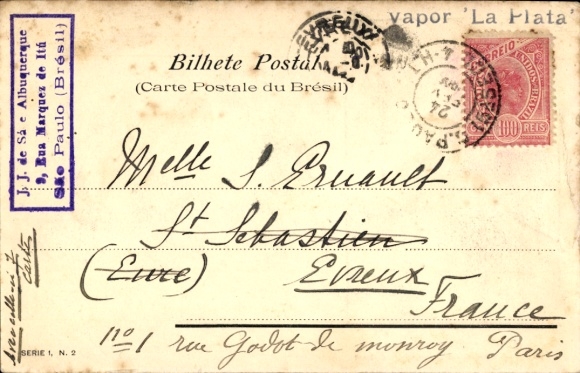 vapor 'La Plata'
EVREUX
Bilhete Postal
(Carte Postale du Brésil)
CORREIO
ESTADOS UNIDOS DO BRAZIL
100 REIS
24
S. PAULO
J. J. de Sá e Albuquerque
9, Rua Marquez de Itú
São Paulo (Brésil)
Melle S. Ernault
St Sebastien
(Eure) Evreux
France
no 1 rue Godot de monroy Paris
carte
SERIE 1, N. 2